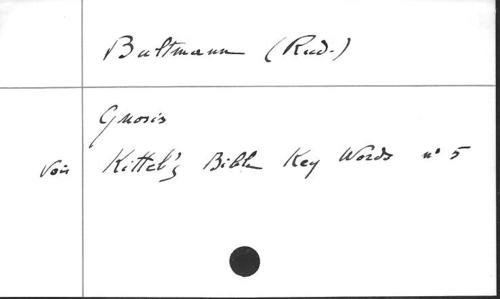 Bultmann (Rud.)
Gnosis
Voir Kittel's Bible Key Words n° 5